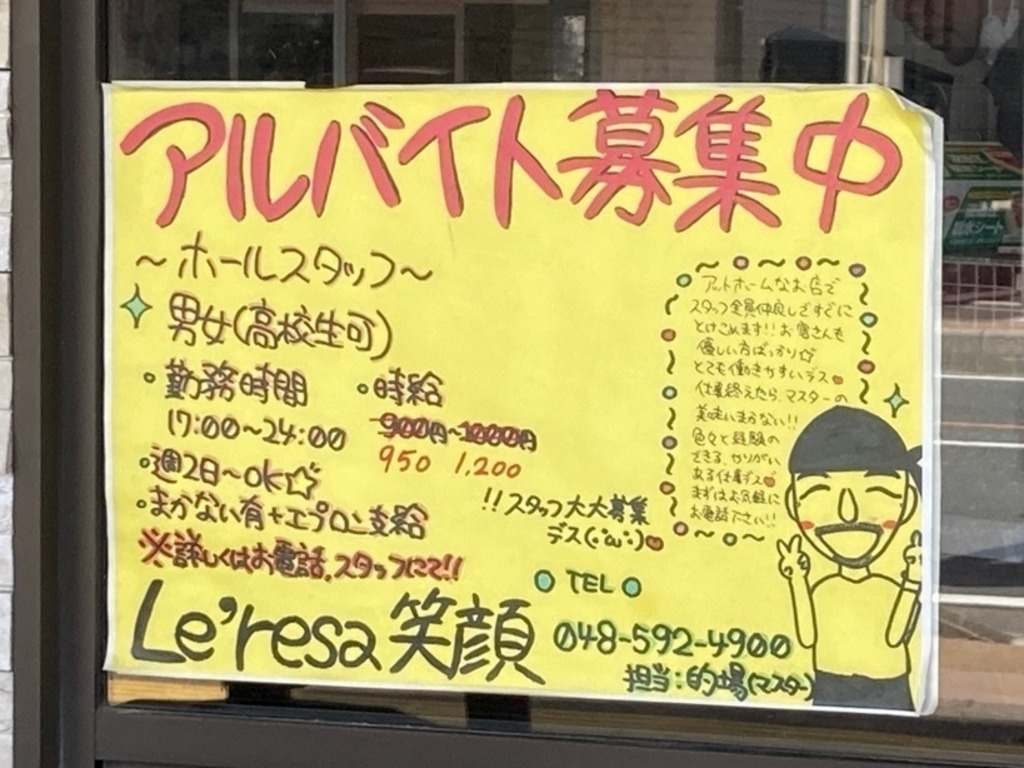 アルバイト募集中
～ホールスタッフ～
男女(高校生可)
・勤務時間
17:00～24:00
・時給
900円～1000円
950 1,200
・週2日～OK☆
・まかない有+エプロン支給
※詳しくはお電話,スタッフにて!!
!!スタッフ大大募集
デス(・'ω'・)
アットホームなお店で
スタッフ全員仲良しですぐに
とけこめます!!お客さんも
優しい方ばっかり☆
とても働きやすいデス
仕事終えたら、マスターの
美味いまかない!!
色々と経験の
できる、やりがい
ある仕事デス
まずはお気軽に
お電話下さい!!
Le'resa 笑顔
TEL
048-592-4900
担当:的場(マスター)